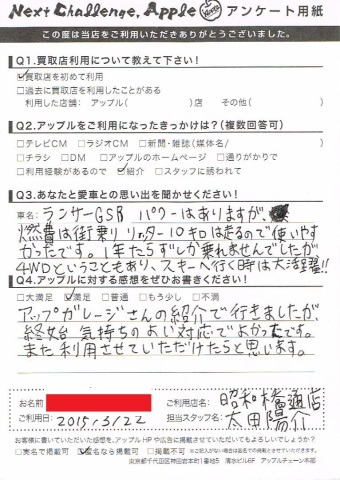 Next Challenge, Apple アンケート用紙
この度は当店をご利用いただきありがとうございました。
Q1.買取店利用について教えて下さい!
☑買取店を初めて利用
□過去に買取店を利用したことがある
利用した店舗: アップル( )店 その他( )
Q2.アップルをご利用になったきっかけは?(複数回答可)
□テレビCM □ラジオCM □新聞・雑誌(媒体名/ )
□チラシ □DM □アップルのホームページ □通りがかりで
□利用経験があるので ☑紹介 □スタッフに誘われて
Q3.あなたと愛車との思い出を聞かせください!
車名: ランサーGSR パワーはありますが、
燃費は街乗り リッター10キロは走るので使いやす
かったです。1年たらずしか乗れませんでしたが
4WDということもあり、スキーへ行く時は大活躍!!
Q4.アップルに対する感想をぜひお書きください!
□大満足 ☑満足 □普通 □もう少し □不満
アップガレージさんの紹介で行きましたが、
終始 気持ちのよい対応でよかったです。
また利用させていただけたらと思います。
お名前
ご利用店名: 昭和橋通店
ご利用日: 2015.3/22
担当スタッフ名: 太田陽介
お客様に書いていただいた感想を、アップルHPや広告に掲載させていただいてもよろしいでしょうか?
□実名で掲載可 ☑匿名なら掲載可 □不可 ※ご記入がない場合は匿名での掲載とさせていただきます。
東京都千代田区神田岩本町1番地5 清水ビル6F アップルチェーン本部